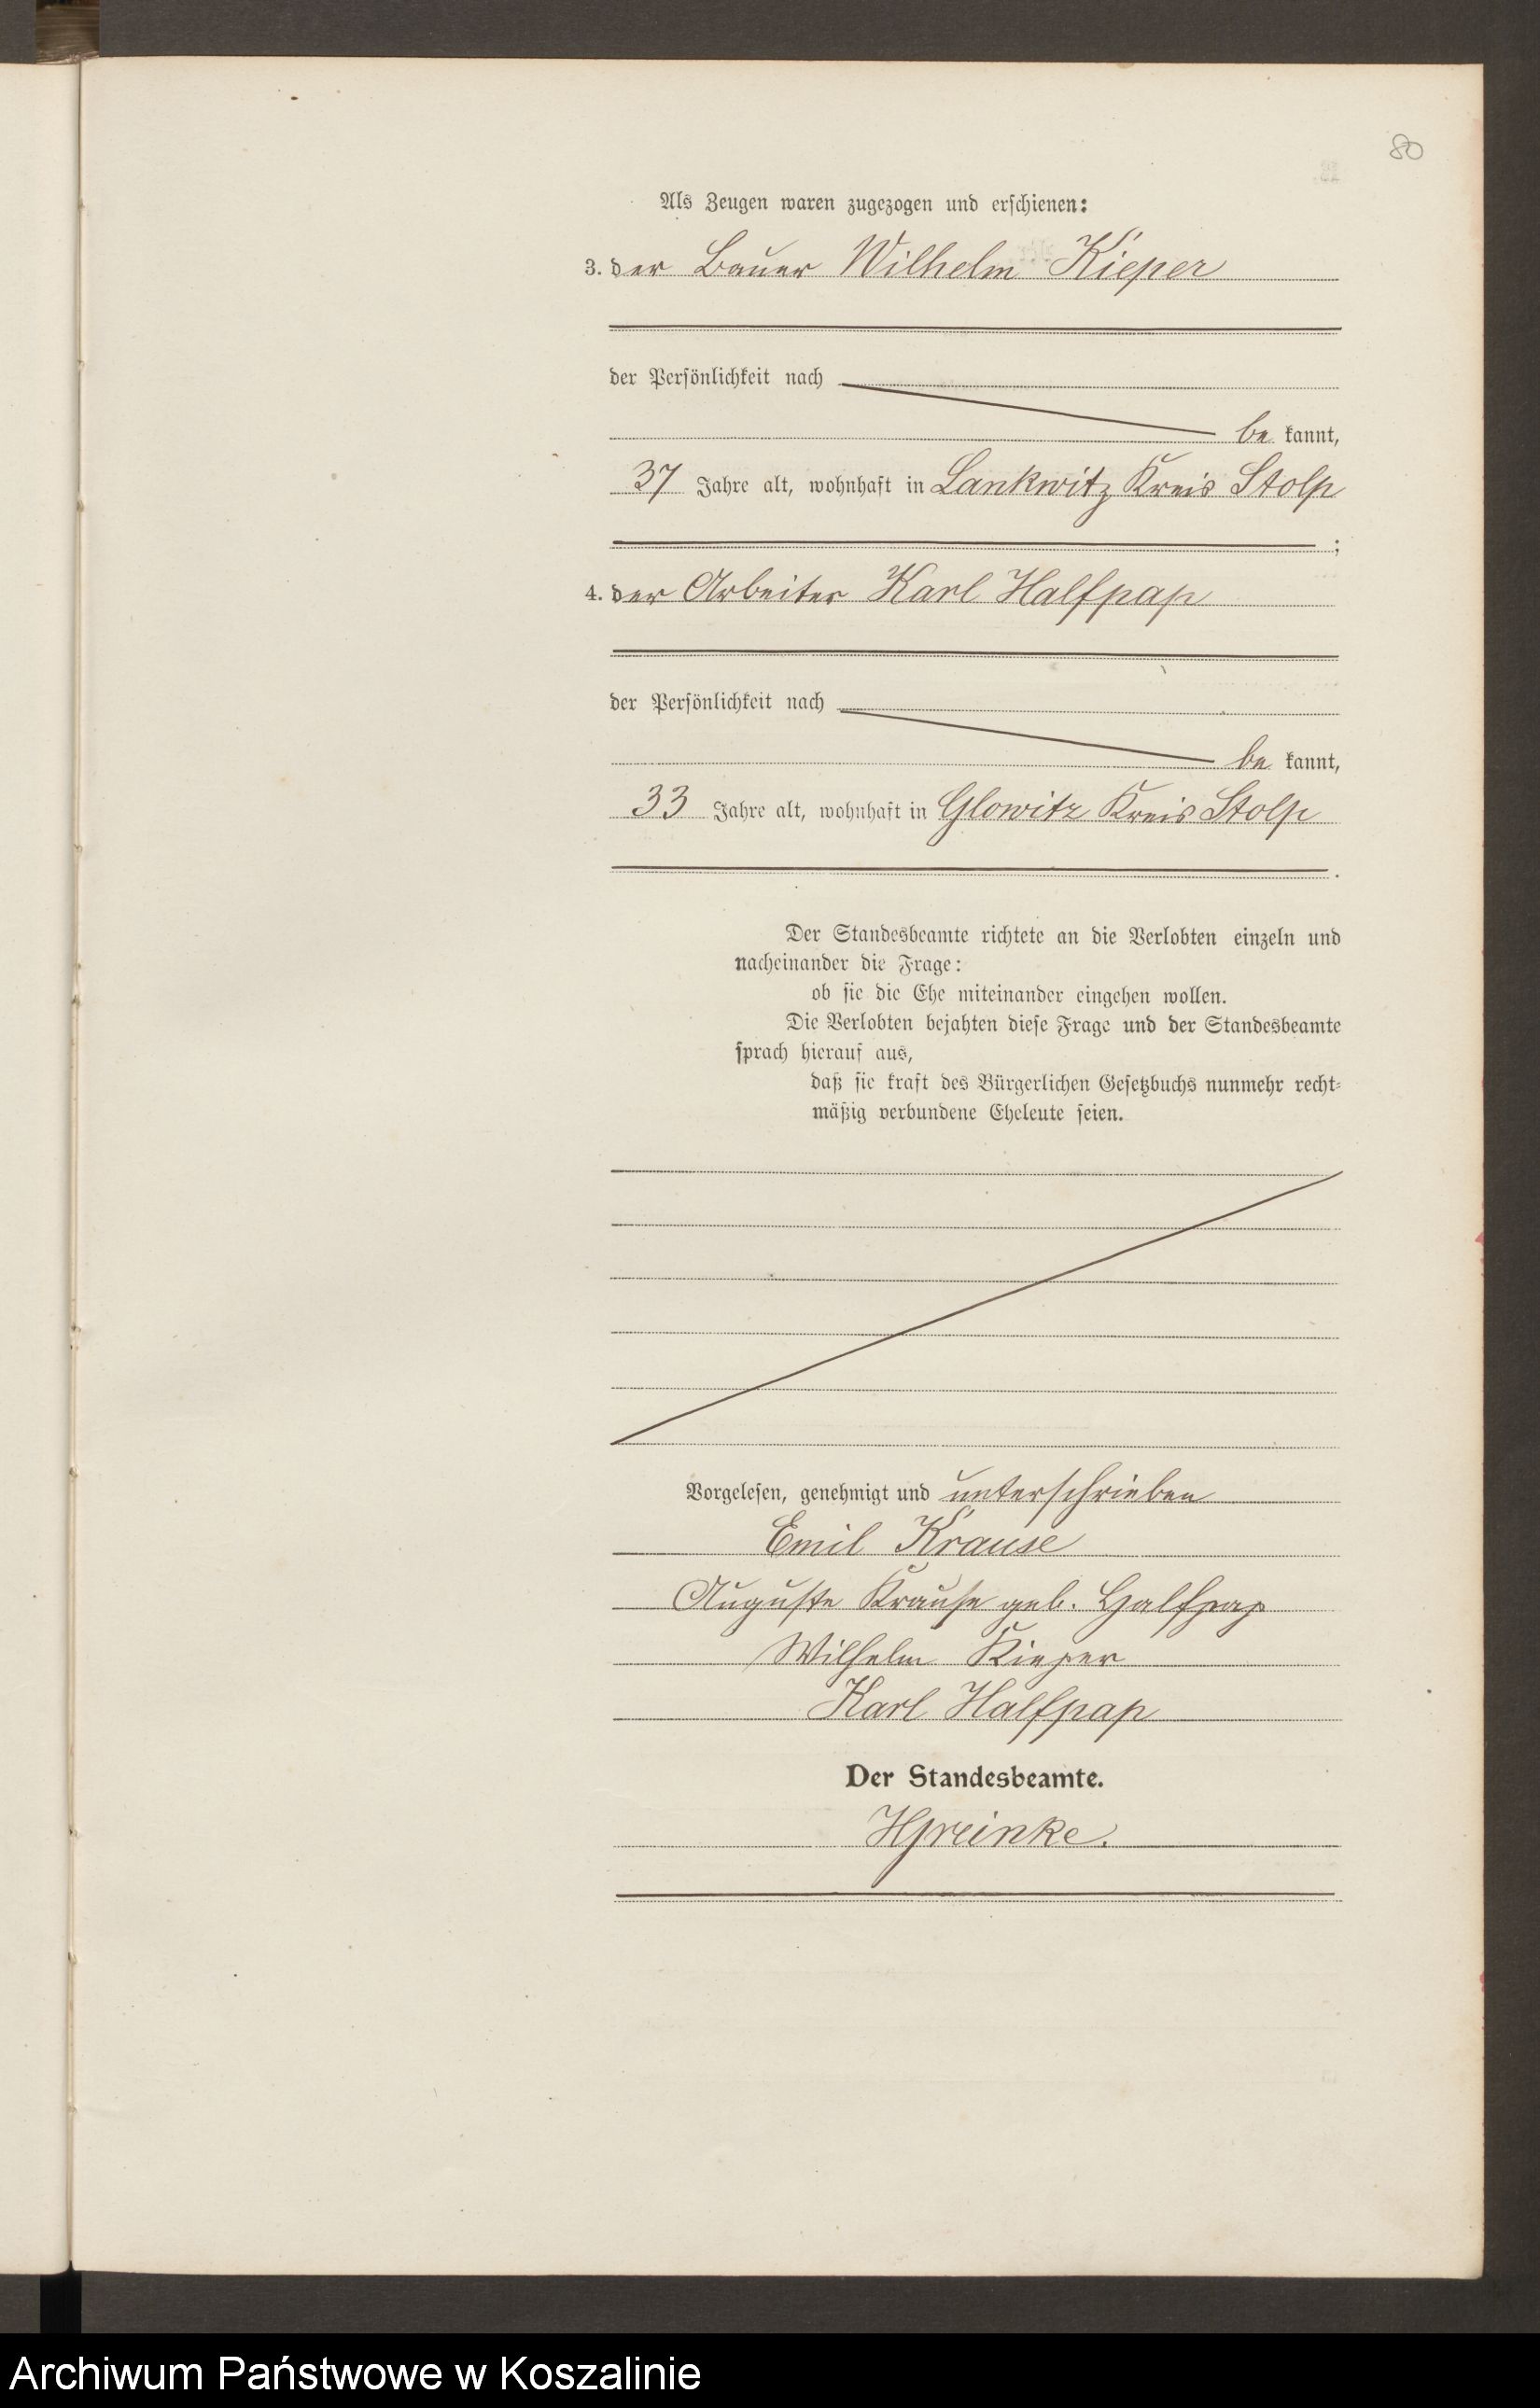 80
Als Zeugen waren zugezogen und erschienen:
3. der Bauer Wilhelm Kieper
der Persönlichkeit nach
be kannt,
37 Jahre alt, wohnhaft in Lankwitz Kreis Stolp
;
4. der Arbeiter Karl Halfpap
der Persönlichkeit nach
be kannt,
33 Jahre alt, wohnhaft in Glowitz Kreis Stolp
.
Der Standesbeamte richtete an die Verlobten einzeln und
nacheinander die Frage:
ob sie die Ehe miteinander eingehen wollen.
Die Verlobten bejahten diese Frage und der Standesbeamte
sprach hierauf aus,
daß sie kraft des Bürgerlichen Gesetzbuchs nunmehr recht-
mäßig verbundene Eheleute seien.
Vorgelesen, genehmigt und unterschrieben
Emil Krause
Auguste Krause geb. Halfpap
Wilhelm Kieper
Karl Halfpap
Der Standesbeamte.
Archiwum Państwowe w Koszalinie